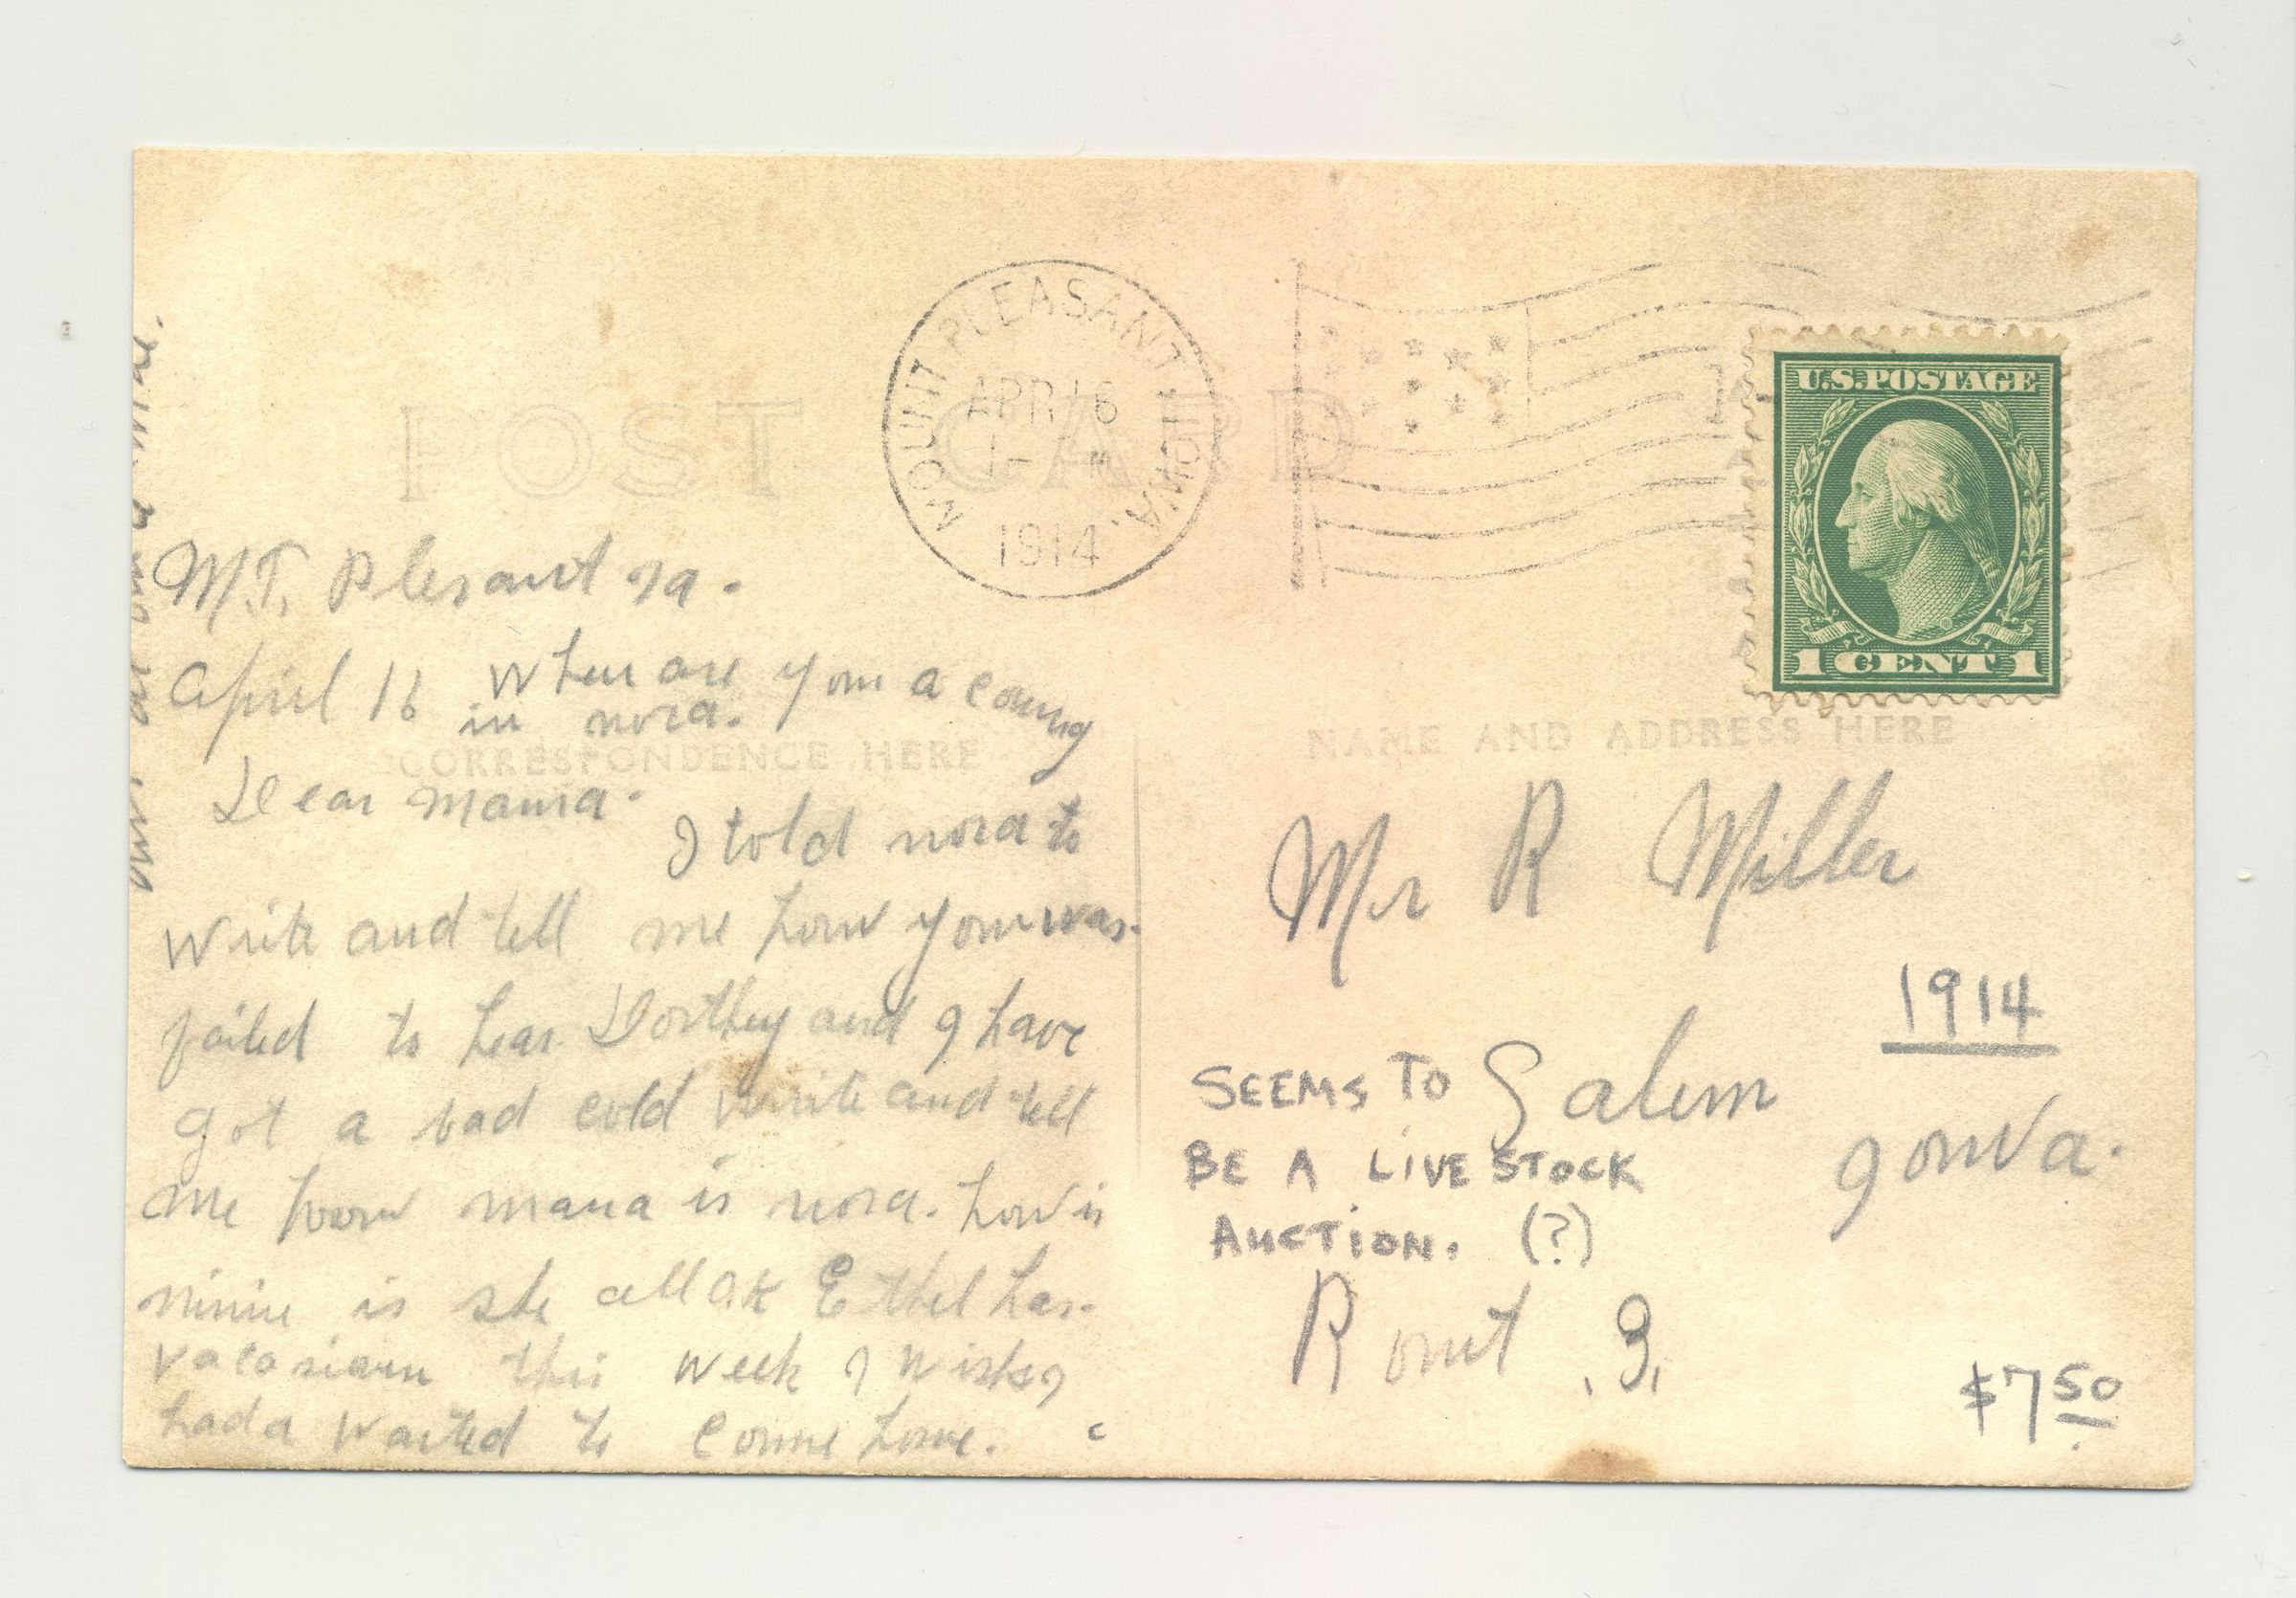 POST CARD
MOUNT PLEASANT, IOWA.
APR 16
1914
U.S. POSTAGE
1 CENT 1
M.T. Plesant Ia.
April 16 When are you a coming
in nora.
CORRESPONDENCE HERE
Dear Mama.
I told nora to
write and tell me how you was.
failed to hear Dorthey and I have
got a bad cold write and tell
me how mama is nora. how is
minie is she all OK Ethel has.
this week I wish I
had a waited to come home.
NAME AND ADDRESS HERE
Mr R Miller
1914
Salem
Iowa.
SEEMS TO
BE A LIVESTOCK
AUCTION. (?)
Rout .3.
$7 50